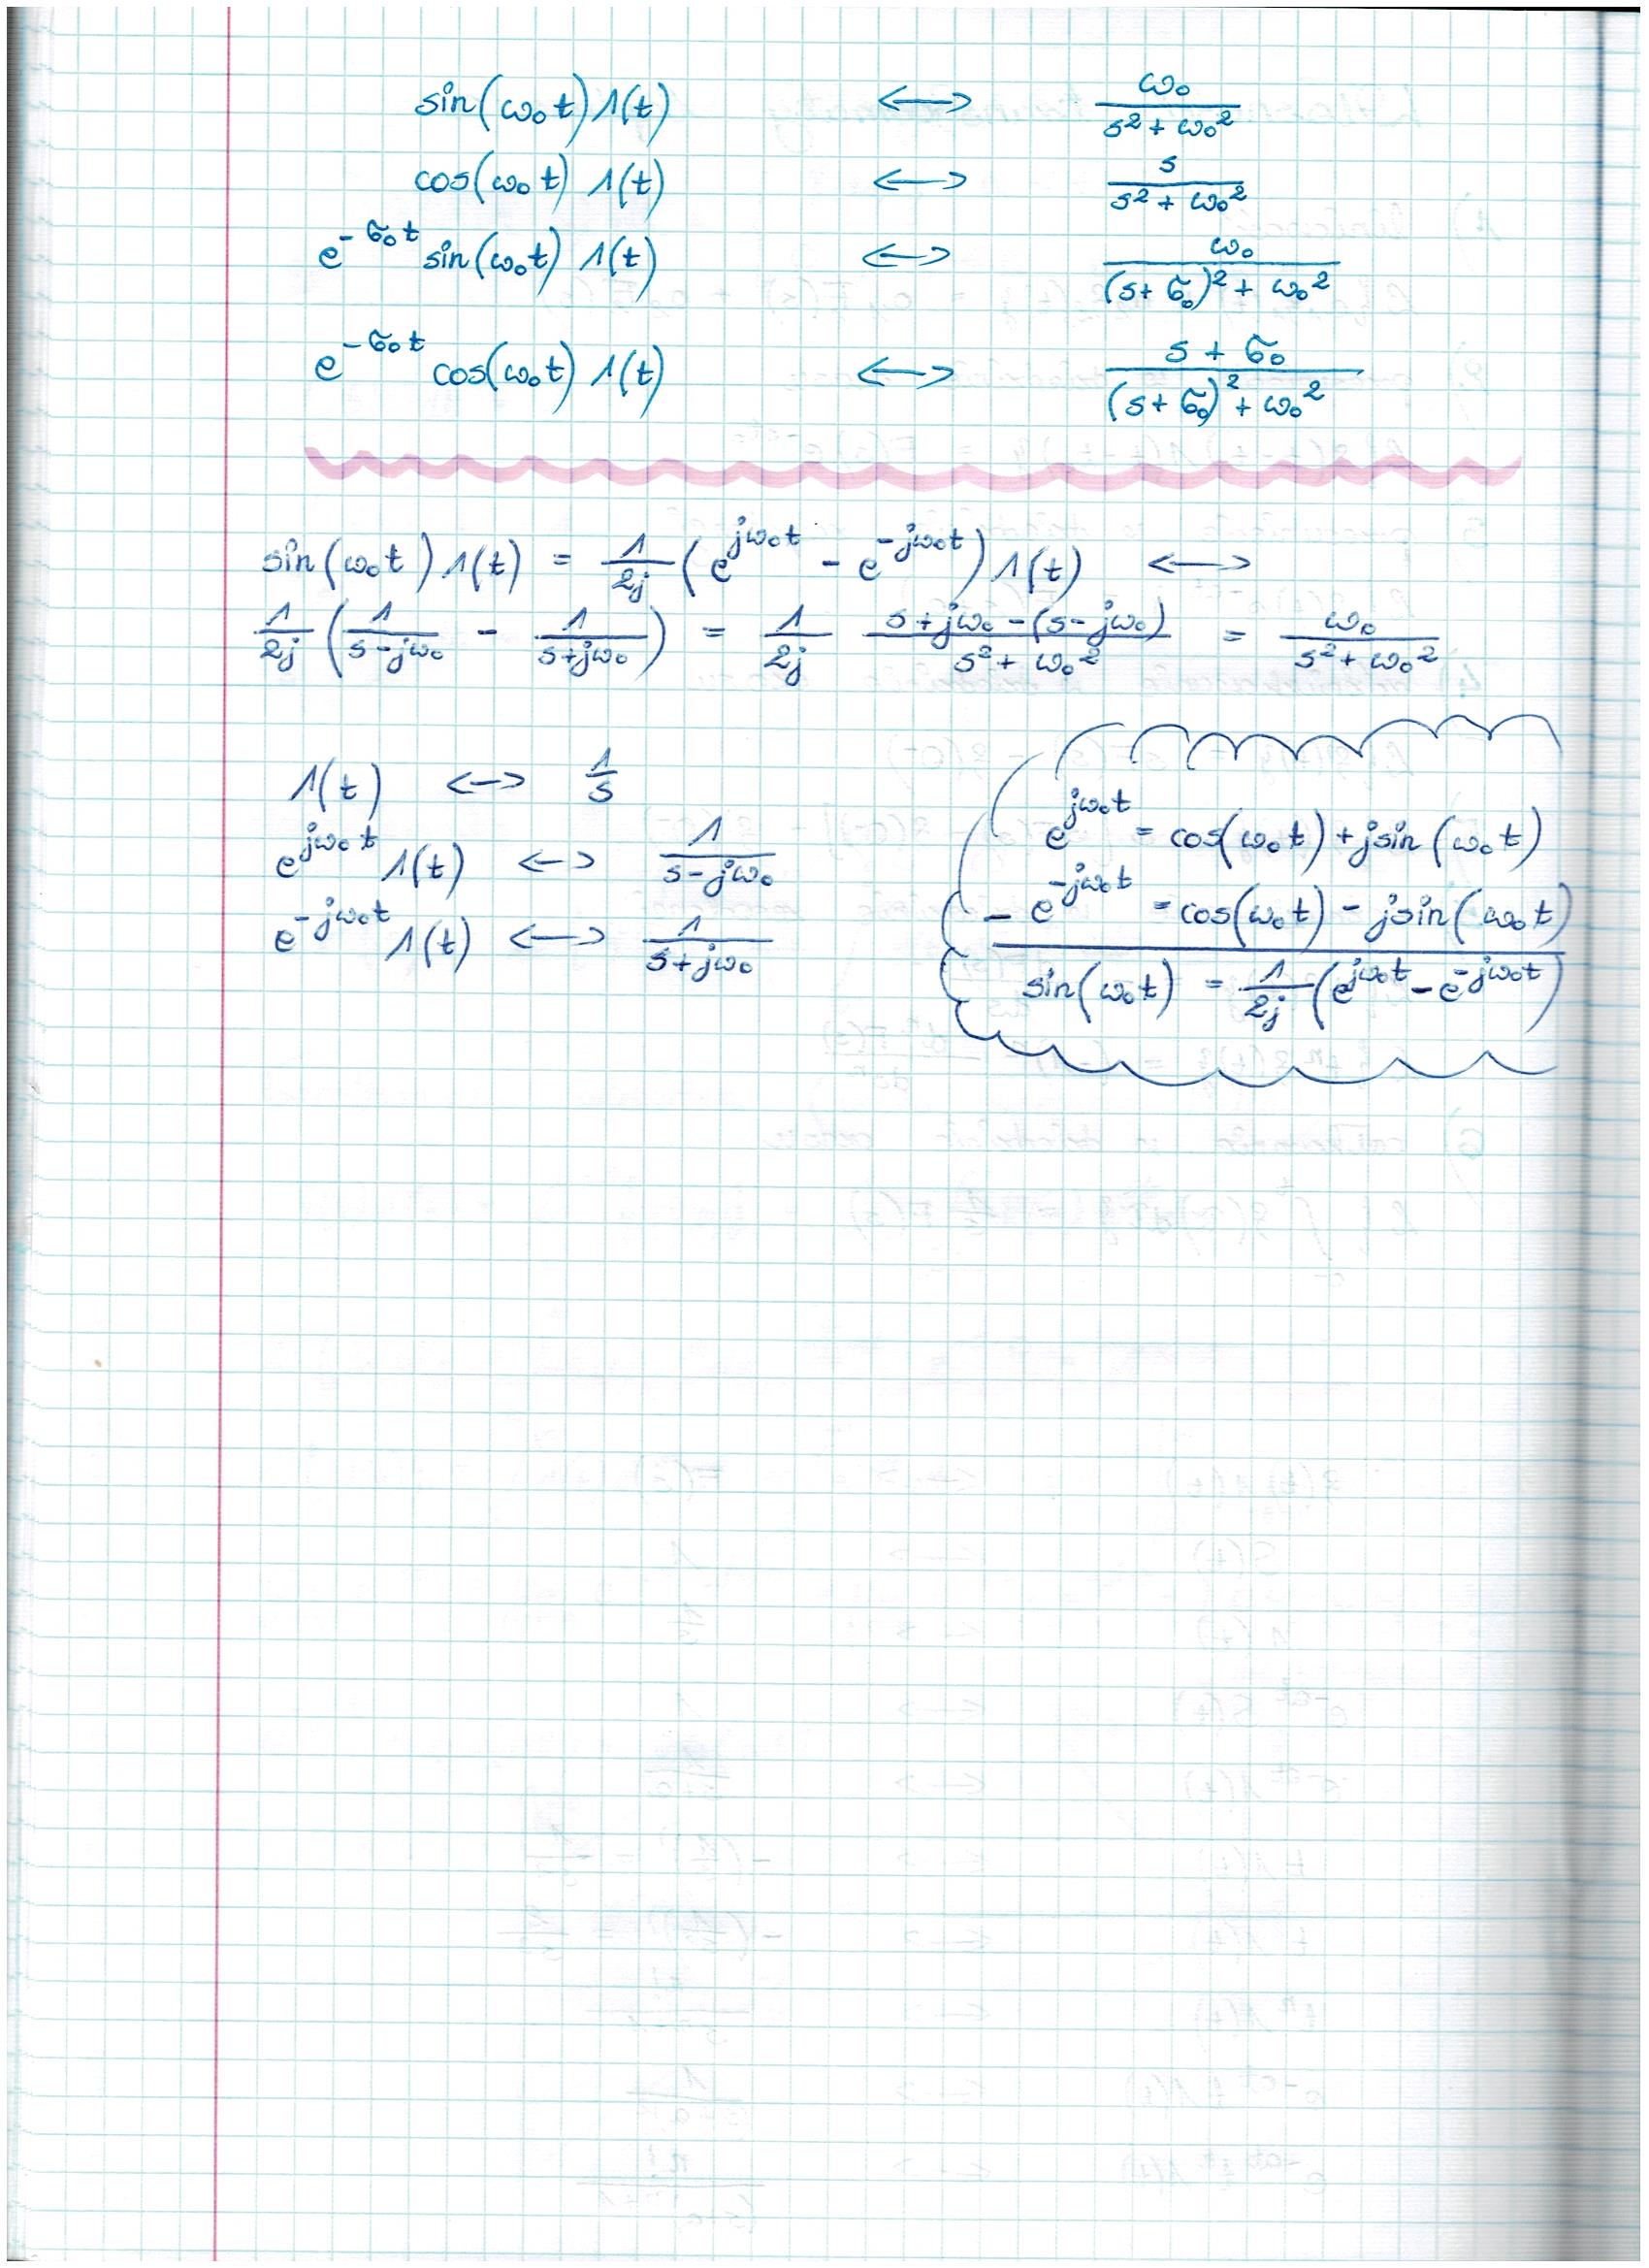 sin(ω₀t) 1(t) <–> ω₀/(s² + ω₀²)
cos(ω₀t) 1(t) <–> s/(s² + ω₀²)
e^(-σ₀t) sin(ω₀t) 1(t) <–> ω₀/((s+σ₀)² + ω₀²)
e^(-σ₀t) cos(ω₀t) 1(t) <–> (s + σ₀)/((s+σ₀)² + ω₀²)
sin(ω₀t) 1(t) = 1/2j (e^(jω₀t) - e^(-jω₀t)) 1(t) <–>
1/2j (1/(s-jω₀) - 1/(s+jω₀)) = 1/2j (s+jω₀-(s-jω₀))/(s² + ω₀²) = ω₀/(s² + ω₀²)
1(t) <–> 1/s
e^(jω₀t) 1(t) <–> 1/(s-jω₀)
e^(-jω₀t) 1(t) <–> 1/(s+jω₀)
e^(jω₀t) = cos(ω₀t) + jsin(ω₀t)
- e^(-jω₀t) = cos(ω₀t) - jsin(ω₀t)
sin(ω₀t) = 1/2j (e^(jω₀t) - e^(-jω₀t))